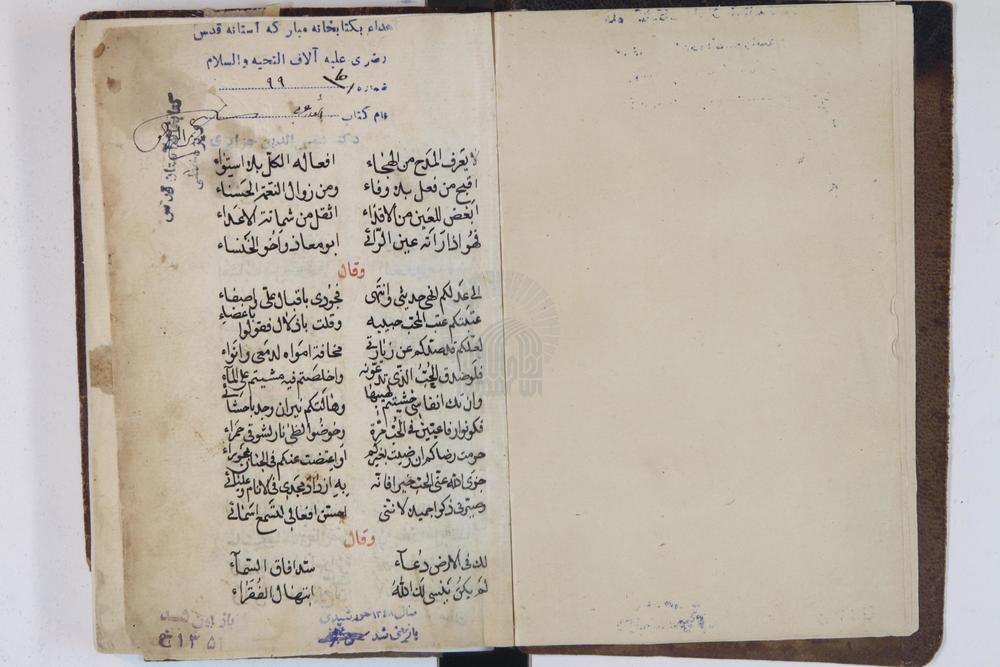 اهداء بکتابخانه مبارکه آستانه قدس
رضوی علیه آلاف التحیه والسلام
شماره ۹۹
نام کتاب
لا يعرف المدح من الهجاء افعاله الكل بلا استواء
اقبح من فعل بلا وفاء ومن زوال النعم الحسناء
ابغض للعين من الاقذاء اثقل من شماتة الاعداء
فهو اذا رأته عين الرائي ابو معاذ واخو الخنساء
وقال
الى عدلكم انهى حديثي وانتهى فجودي باقبال علي واصغاء
عتبتكم عتب المحب حبيبه وقلت باذلال فقولوا باغضاء
لعلكم قد صدكم عن زيارتي مخافة امواه لدمعي وانواء
فلو صدق الحب الذي تدعونه واخلصتم فيه مشيتم على الماء
وان تك انفاسي خشيتم لهيبها وهالتكم نيران وجد باحشائي
فكونوا رفاعيين في الحب مرة وخوضوا لظى نار لشوقي حمراء
حرمت رضاكم ان رضيت بغيركم او اعتضت عنكم في الجنان بحوراء
جزى الله عني الحب خيرا فانه به ازداد مجدي في الانام وعليائي
وصير لي ذكرا جميلا لانني احسن افعالي لتسمع اسمائي
وقال
لك في الارض دعاء سد افاق السماء
لم يكن ينسى لك الله ابتهال الفقراء
سال ۱۳۴۸ خورشیدی
بازبینی شد
بازبین شد
۱۳۵۱ خ